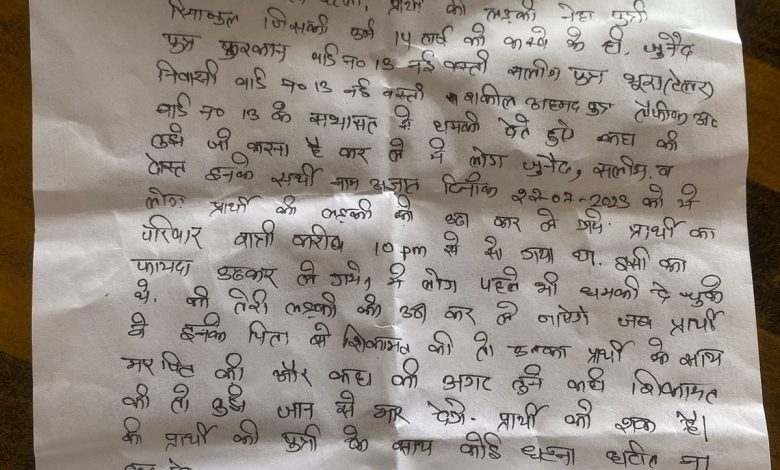 प्रार्थी की लड़की नेहा पुत्री
जिसकी उम्र 14 वर्ष की कस्बे के ही. जुनैद
पुत्र फुरकान वार्ड न० 13 नई बस्ती सलीम पुत्र भूरा (टेलर)
निवासी वार्ड न० 13 नई बस्ती शकील अहमद पुत्र
वार्ड न० 13 के सभासत ने धमकी देते हुए कहा की
तुझे जो करना है कर ले ये लोग जुनैद, सलीम, व
इनके साथी नाम अज्ञात दिनांक 22-07-2023 को ये
लोग प्रार्थी की लड़की को उठा कर ले गये. प्रार्थी का
परिवार रात्री करीब 10 pm से सो गया था. इसी का
फायदा उठाकर ले गये, ये लोग पहले भी धमकी दे चुके
थे. की तेरी लड़की को उठा कर ले जाएंगे जब प्रार्थी
ने इनके पिता से शिकायत की तो प्रार्थी के साथ
मार पित की और कहा की अगर तुने कही शिकायत
की तो तुझे जान से मार देंगे. प्रार्थी को शक है।
की प्रार्थी की पुत्री के साथ कोई घटना घटीत ना